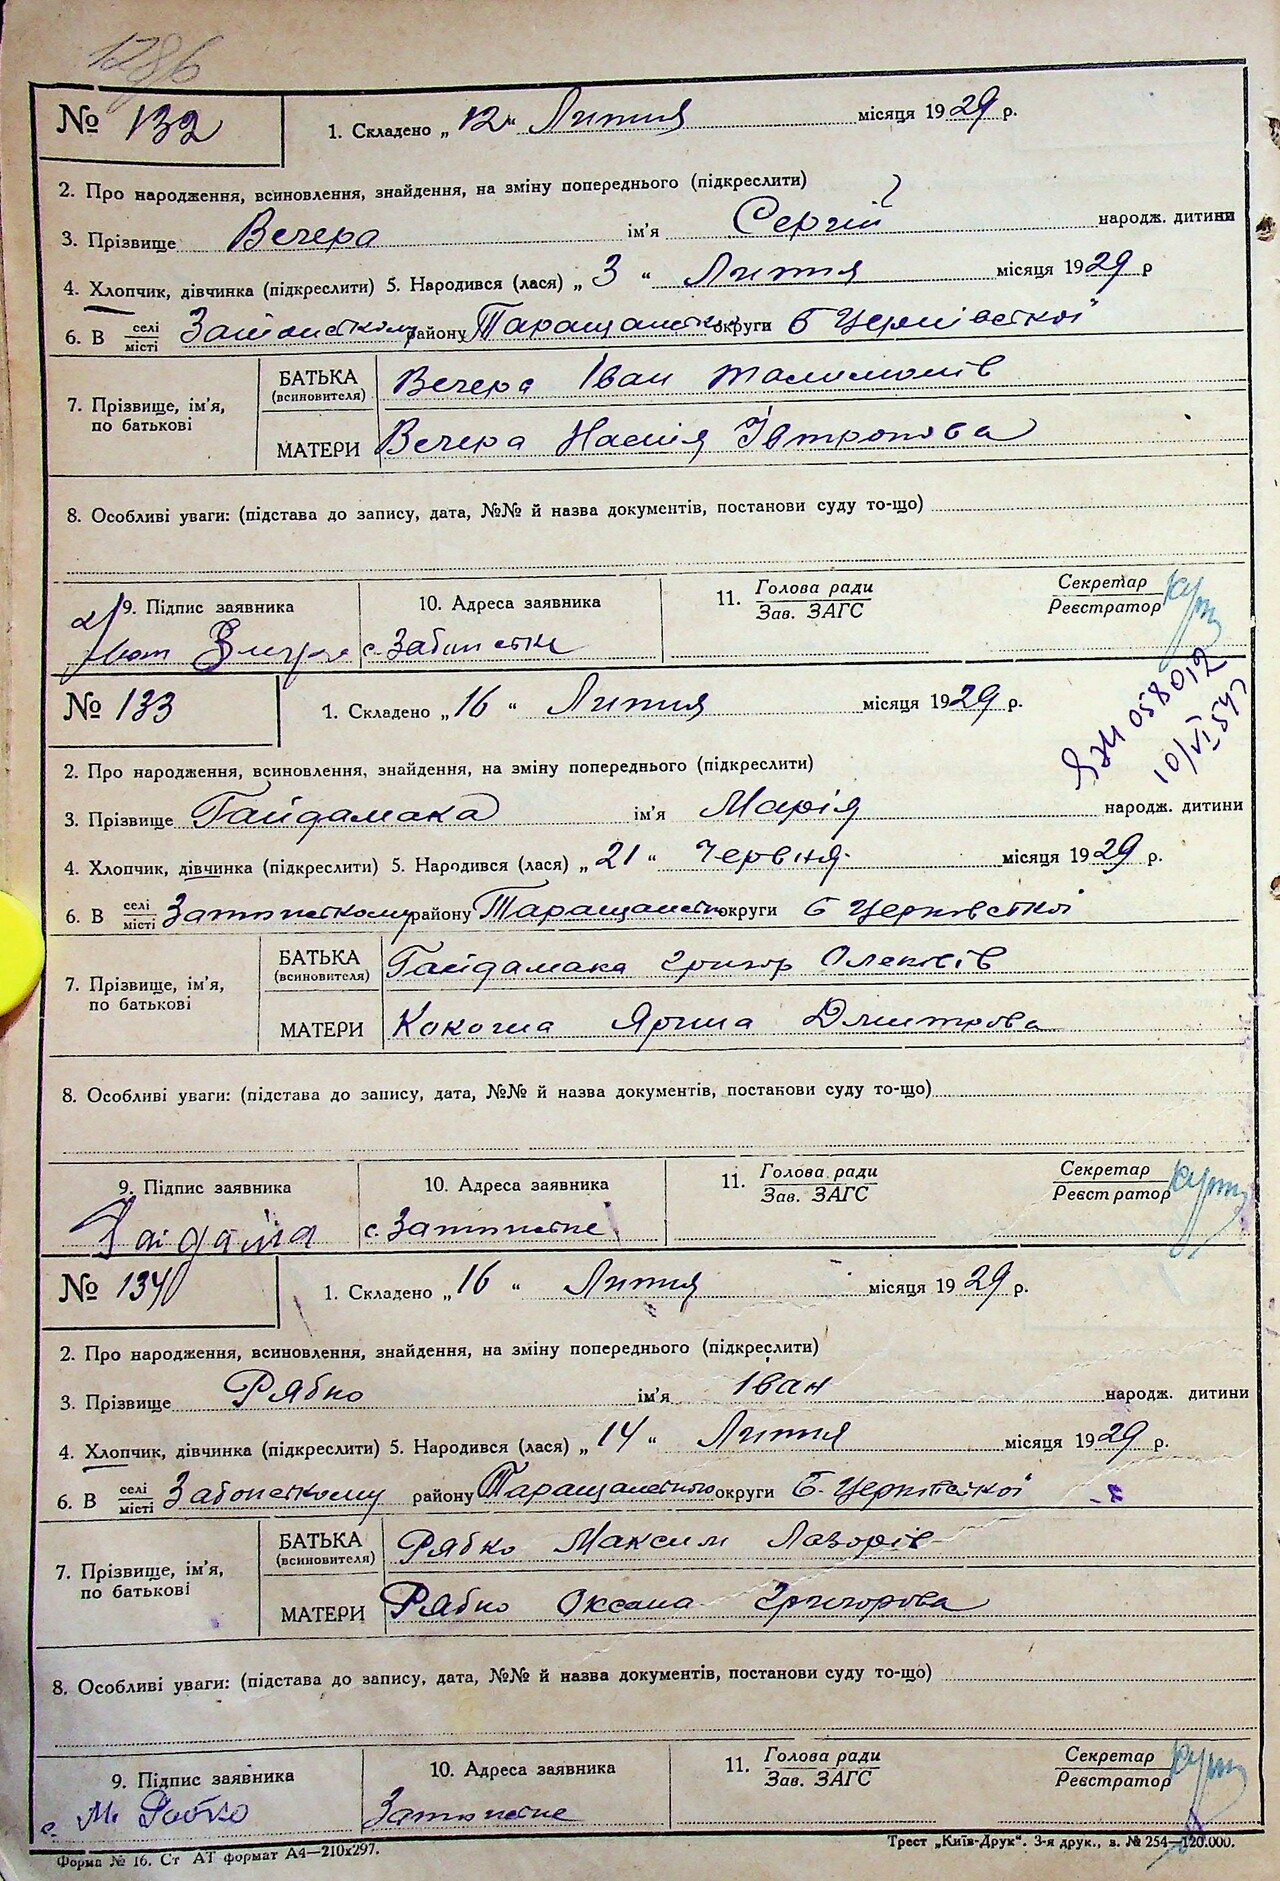 1286
№ 132 1. Складено „12" Липня місяця 1929 р.
2. Про народження, всиновлення, знайдення, на зміну попереднього (підкреслити)
3. Прізвище Вечера ім'я Сергій народж. дитини
4. Хлопчик, дівчинка (підкреслити) 5. Народився (лася) „3" Липня місяця 1929 р
6. В селі місті району Таращанськ округи Б Церківської
7. Прізвище, ім'я, по батькові
БАТЬКА (всиновителя) Вечера Іван
МАТЕРИ Вечера Настя
8. Особливі уваги: (підстава до запису, дата, №№ й назва документів, постанови суду то-що)
9. Підпис заявника 10. Адреса заявника 11. Голова ради Зав. ЗАГС Секретар Реєстратор
с.
№ 133 1. Складено „16" Липня місяця 1929 р.
2. Про народження, всиновлення, знайдення, на зміну попереднього (підкреслити)
3. Прізвище Гайдамака ім'я Марія народж. дитини
4. Хлопчик, дівчинка (підкреслити) 5. Народився (лася) „21" Червня місяця 1929 р.
6. В селі місті району Таращанськ округи Б Церковської
7. Прізвище, ім'я, по батькові
БАТЬКА (всиновителя) Гайдамака Григор
МАТЕРИ Ярина Дмитрова
8. Особливі уваги: (підстава до запису, дата, №№ й назва документів, постанови суду то-що)
9. Підпис заявника 10. Адреса заявника 11. Голова ради Зав. ЗАГС Секретар Реєстратор
с.
№ 134 1. Складено „16" Липня місяця 1929 р.
2. Про народження, всиновлення, знайдення, на зміну попереднього (підкреслити)
3. Прізвище Рябко ім'я Іван народж. дитини
4. Хлопчик, дівчинка (підкреслити) 5. Народився (лася) „14" Липня місяця 1929 р.
6. В селі місті району Таращанського округи Б. Церківської
7. Прізвище, ім'я, по батькові
БАТЬКА (всиновителя) Рябко Максим Лазорів
МАТЕРИ Рябко Оксана Григорова
8. Особливі уваги: (підстава до запису, дата, №№ й назва документів, постанови суду то-що)
9. Підпис заявника 10. Адреса заявника 11. Голова ради Зав. ЗАГС Секретар Реєстратор
М. Рябко
Форма № 16. Ст АТ формат А4—210х297. Трест „Київ-Друк". 3-я друк., в. № 254—120.000.